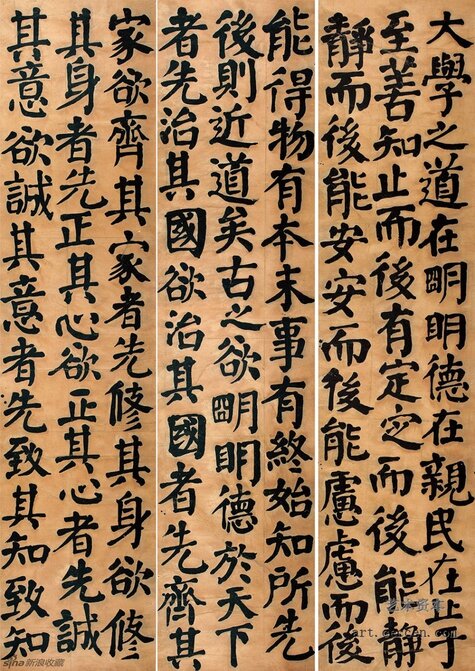 大學之道在朙明德在親民在止于
至善知止而後有定定而後能靜
靜而後能安安而後能慮慮而後
能得物有本末事有終始知所先
後則近道矣古之欲朙明德於天下
者先治其國欲治其國者先齊其
家欲齊其家者先修其身欲修
其身者先正其心欲正其心者先誠
其意欲誠其意者先致其知致知
sina新浪收藏